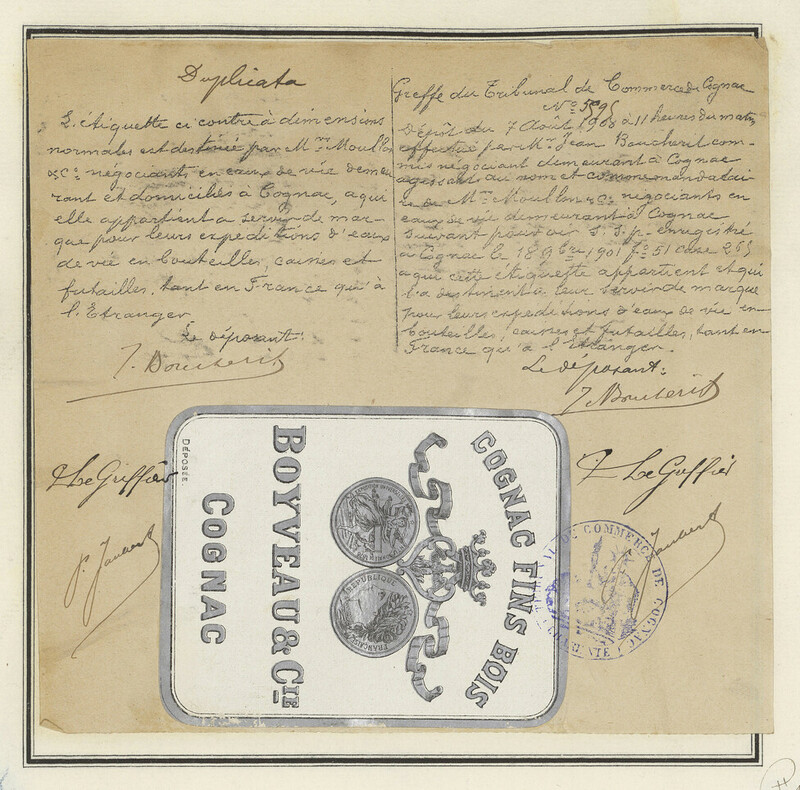 Duplicata
L'étiquette ci contre à dimensions
normales est destinée par Mrs Moullon
& Cie négociants en eaux de vie demeu
rant et domiciliés à Cognac, a qui
elle appartient a servir de mar-
que pour leurs expéditions d'eaux
de vie en bouteilles, caisses et
futailles, tant en France qu'à
l'Etranger
Le déposant:
J. Boucherit
Greffe du Tribunal de Commerce de Cognac
No
Dépôt du 7 Août 1908 à 11 heures du matin
effectué par M. Jean Boucherit com-
mis négociant demeurant à Cognac
agissant au nom et comme mandatai
re de Mrs Moullon & Cie négociants en
eaux de vie demeurant à Cognac
Suivant pouvoir S.S.p. enregistré
a Cognac le 18 9bre 1901 fo 51 case 265
a qui cette etiquette appartient et qui
la destinent à leur servir de marque
pour leurs expéditions d'eaux de vie en
bouteilles, caisses et futailles, tant en
France qu'a l'Etranger.
Le déposant:
J. Boucherit
P. Le Greffier
P. Le Greffier
COGNAC FINS BOIS
REPUBLIQUE
FRANÇAISE
BOYVEAU & CIE
COGNAC
DÉPOSÉE.
TRIBUNAL DE COMMERCE DE COGNAC
CHARENTE